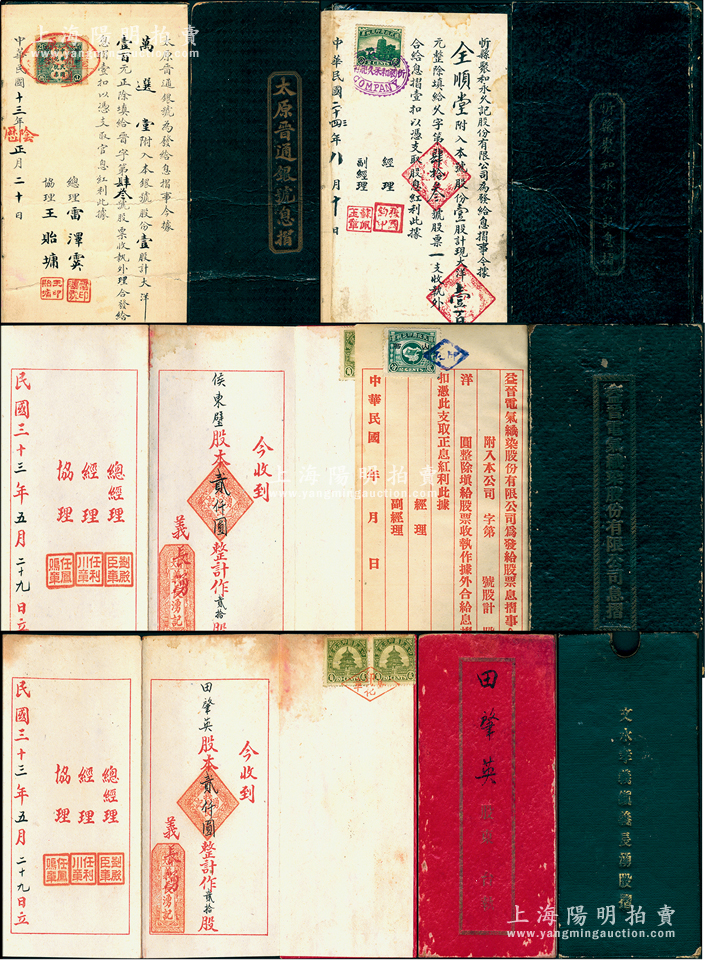 太原晉通銀號為發給息摺事今據
萬選堂附入本銀號股份壹股計大洋
壹百元正除填給晉字第肆叁號股票收執外理合發給
息摺壹扣以憑支取官息紅利此據
總理 雷澤霙
協理 王貽墉
中華民國十三年正月二十日
陰曆
太原晉通銀號息摺
忻縣聚和永久記股份有限公司為發給息摺事今據
全順堂附入本號股份壹股計現大洋壹百
元整除填給久字第肆拾叁號股票一支收執外
合給息摺壹扣以憑支取股息紅利此據
經理
副經理
中華民國二十四年八月十日
COMPANY
今收到
侯東璧股本貳仟圓整計作貳拾股
義長湧
湧記
總經理
經理
協理
民國三十三年五月二十九日立
益晉電氣織染股份有限公司為發給股票息摺事今
附入本公司 字第 號股計
洋 圓整除填給股票收執作據外合給息摺
扣憑此支取正息紅利此據
經理
副經理
中華民國 年 月 日
益晉電氣織染股份有限公司息摺
今收到
田肇英股本貳仟圓整計作貳拾股
義長湧
湧記
總經理
經理
協理
民國三十三年五月二十九日立
田肇英
文水孝義鎮義長湧股摺
上海陽明拍賣
www.yangmingauction.com
上海陽明拍賣
www.yangmingauction.com
上海陽明拍賣
www.yangmingauction.com